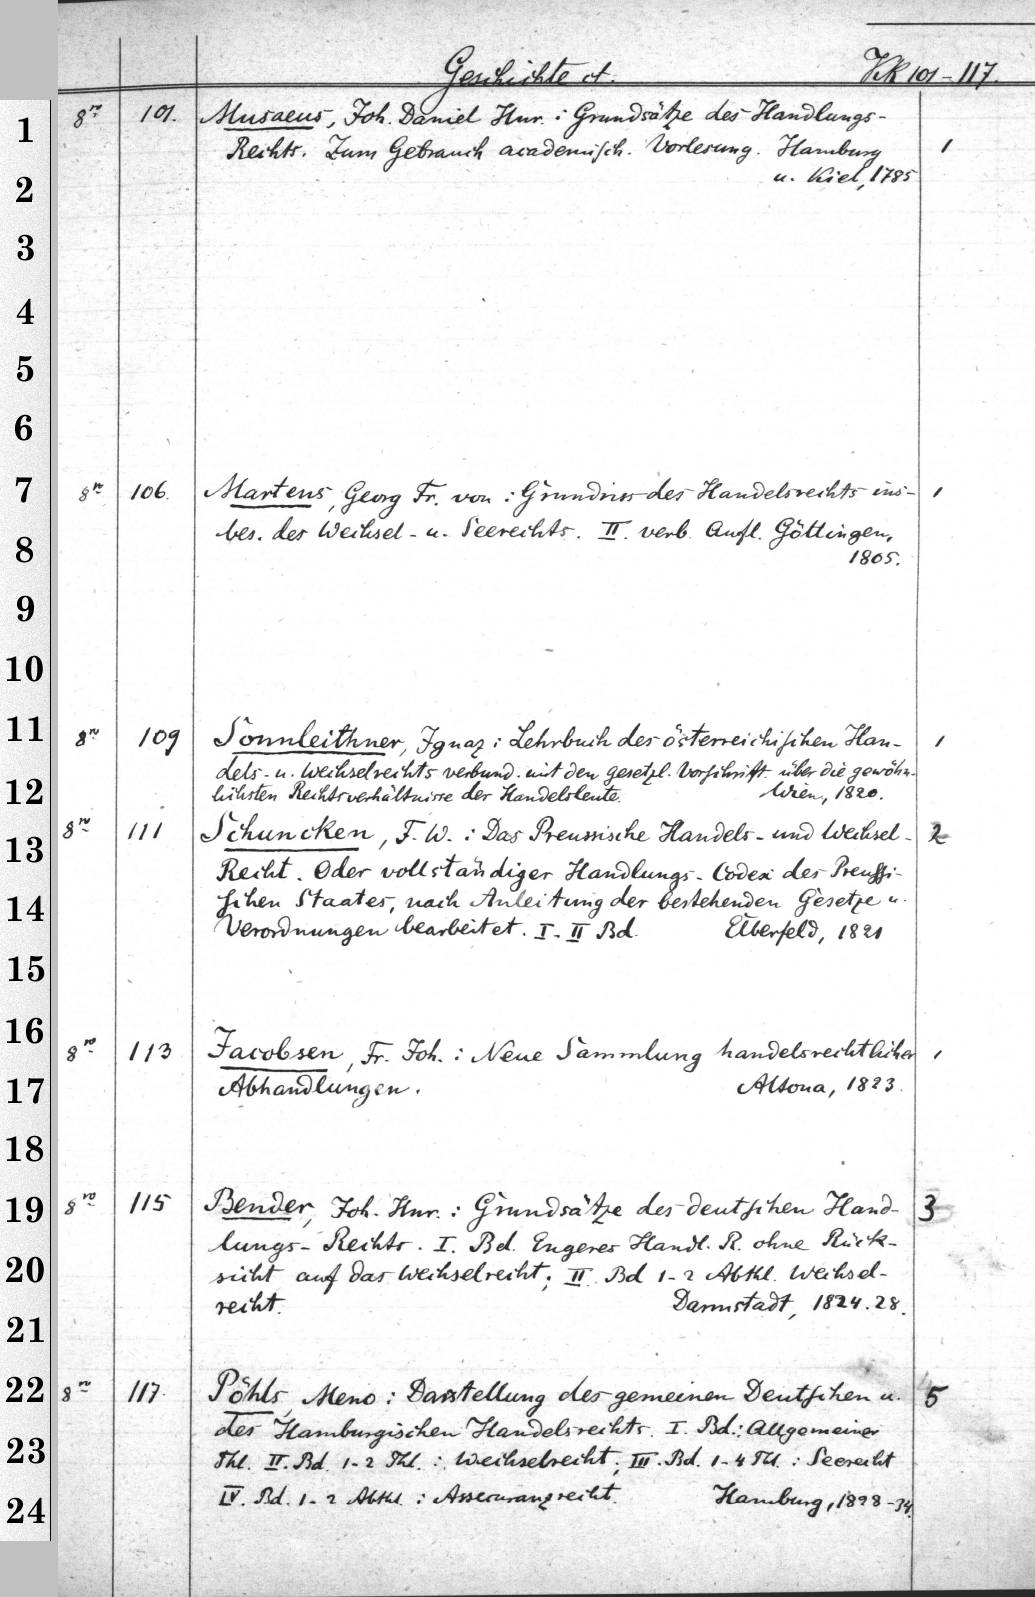 Geschichte ct. VK 101-117.
8ro 101. Musaeus, Joh. Daniel Hnr. : Grundsätze des Handlungs-
Rechts. Zum Gebrauch academisch. Vorlesung. Hamburg 1
u. Kiel, 1785
8ro 106. Martens, Georg Fr. von : Grundriss des Handelsrechts ins- 1
bes. des Wechsel- u. Seerechts. II. verb. Aufl. Göttingen,
1805.
8ro 109 Sonnleithner, Ignaz : Lehrbuch des österreichischen Han- 1
dels- u. Wechselrechts verbund. mit den gesetzl. Vorschrift. über die gewöhn-
lichsten Rechtsverhältnisse der Handelsleute. Wien, 1820.
8ro 111 Schuncken, F. W. : Das Preussische Handels- und Wechsel- 2
Recht. Oder vollständiger Handlungs-Codex des Preussi-
schen Staates, nach Anleitung der bestehenden Gesetze u.
Verordnungen bearbeitet. I-II Bd. Elberfeld, 1821
8ro 113 Jacobsen, Fr. Joh. : Neue Sammlung handelsrechtlicher 1
Abhandlungen. Altona, 1823.
8ro 115 Bender, Joh. Hnr. : Grundsätze des deutschen Hand- 3
lungs-Rechts. I. Bd. Engeres Handl. R. ohne Rück-
sicht auf das Wechselrecht; II. Bd 1-2 Abthl. Wechsel-
recht. Darmstadt, 1824.28.
8ro 117. Pöhls, Meno : Darstellung des gemeinen Deutschen u. 5
des Hamburgischen Handelsrechts. I. Bd.: Allgemeiner
Thl. II. Bd. 1-2 Thl. : Wechselrecht; III. Bd. 1-4 Thl. : Seerecht
IV. Bd. 1-2 Abthl. : Assecuranzrecht. Hamburg, 1828-34.
1
2
3
4
5
6
7
8
9
10
11
12
13
14
15
16
17
18
19
20
21
22
23
24